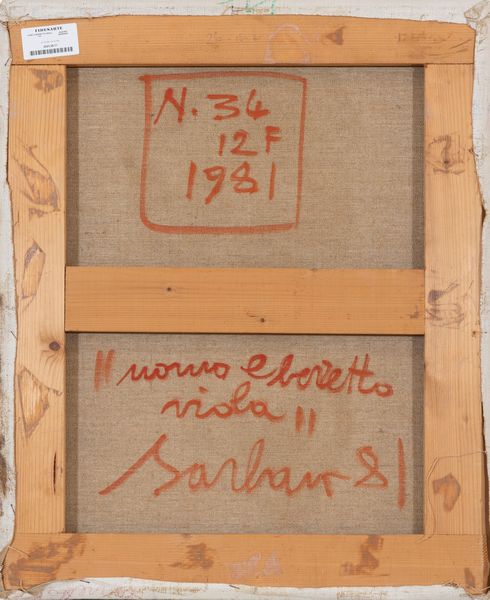 FIDESARTE
N. 34
12 F
1981
"uomo e beretto
viola"
Barbaro 81